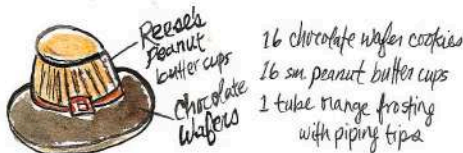 Reese's
Peanut
butter cups
Chocolate
Wafers
16 chocolate wafer cookies
16 sm. peanut butter cups
1 tube orange frosting
with piping tips